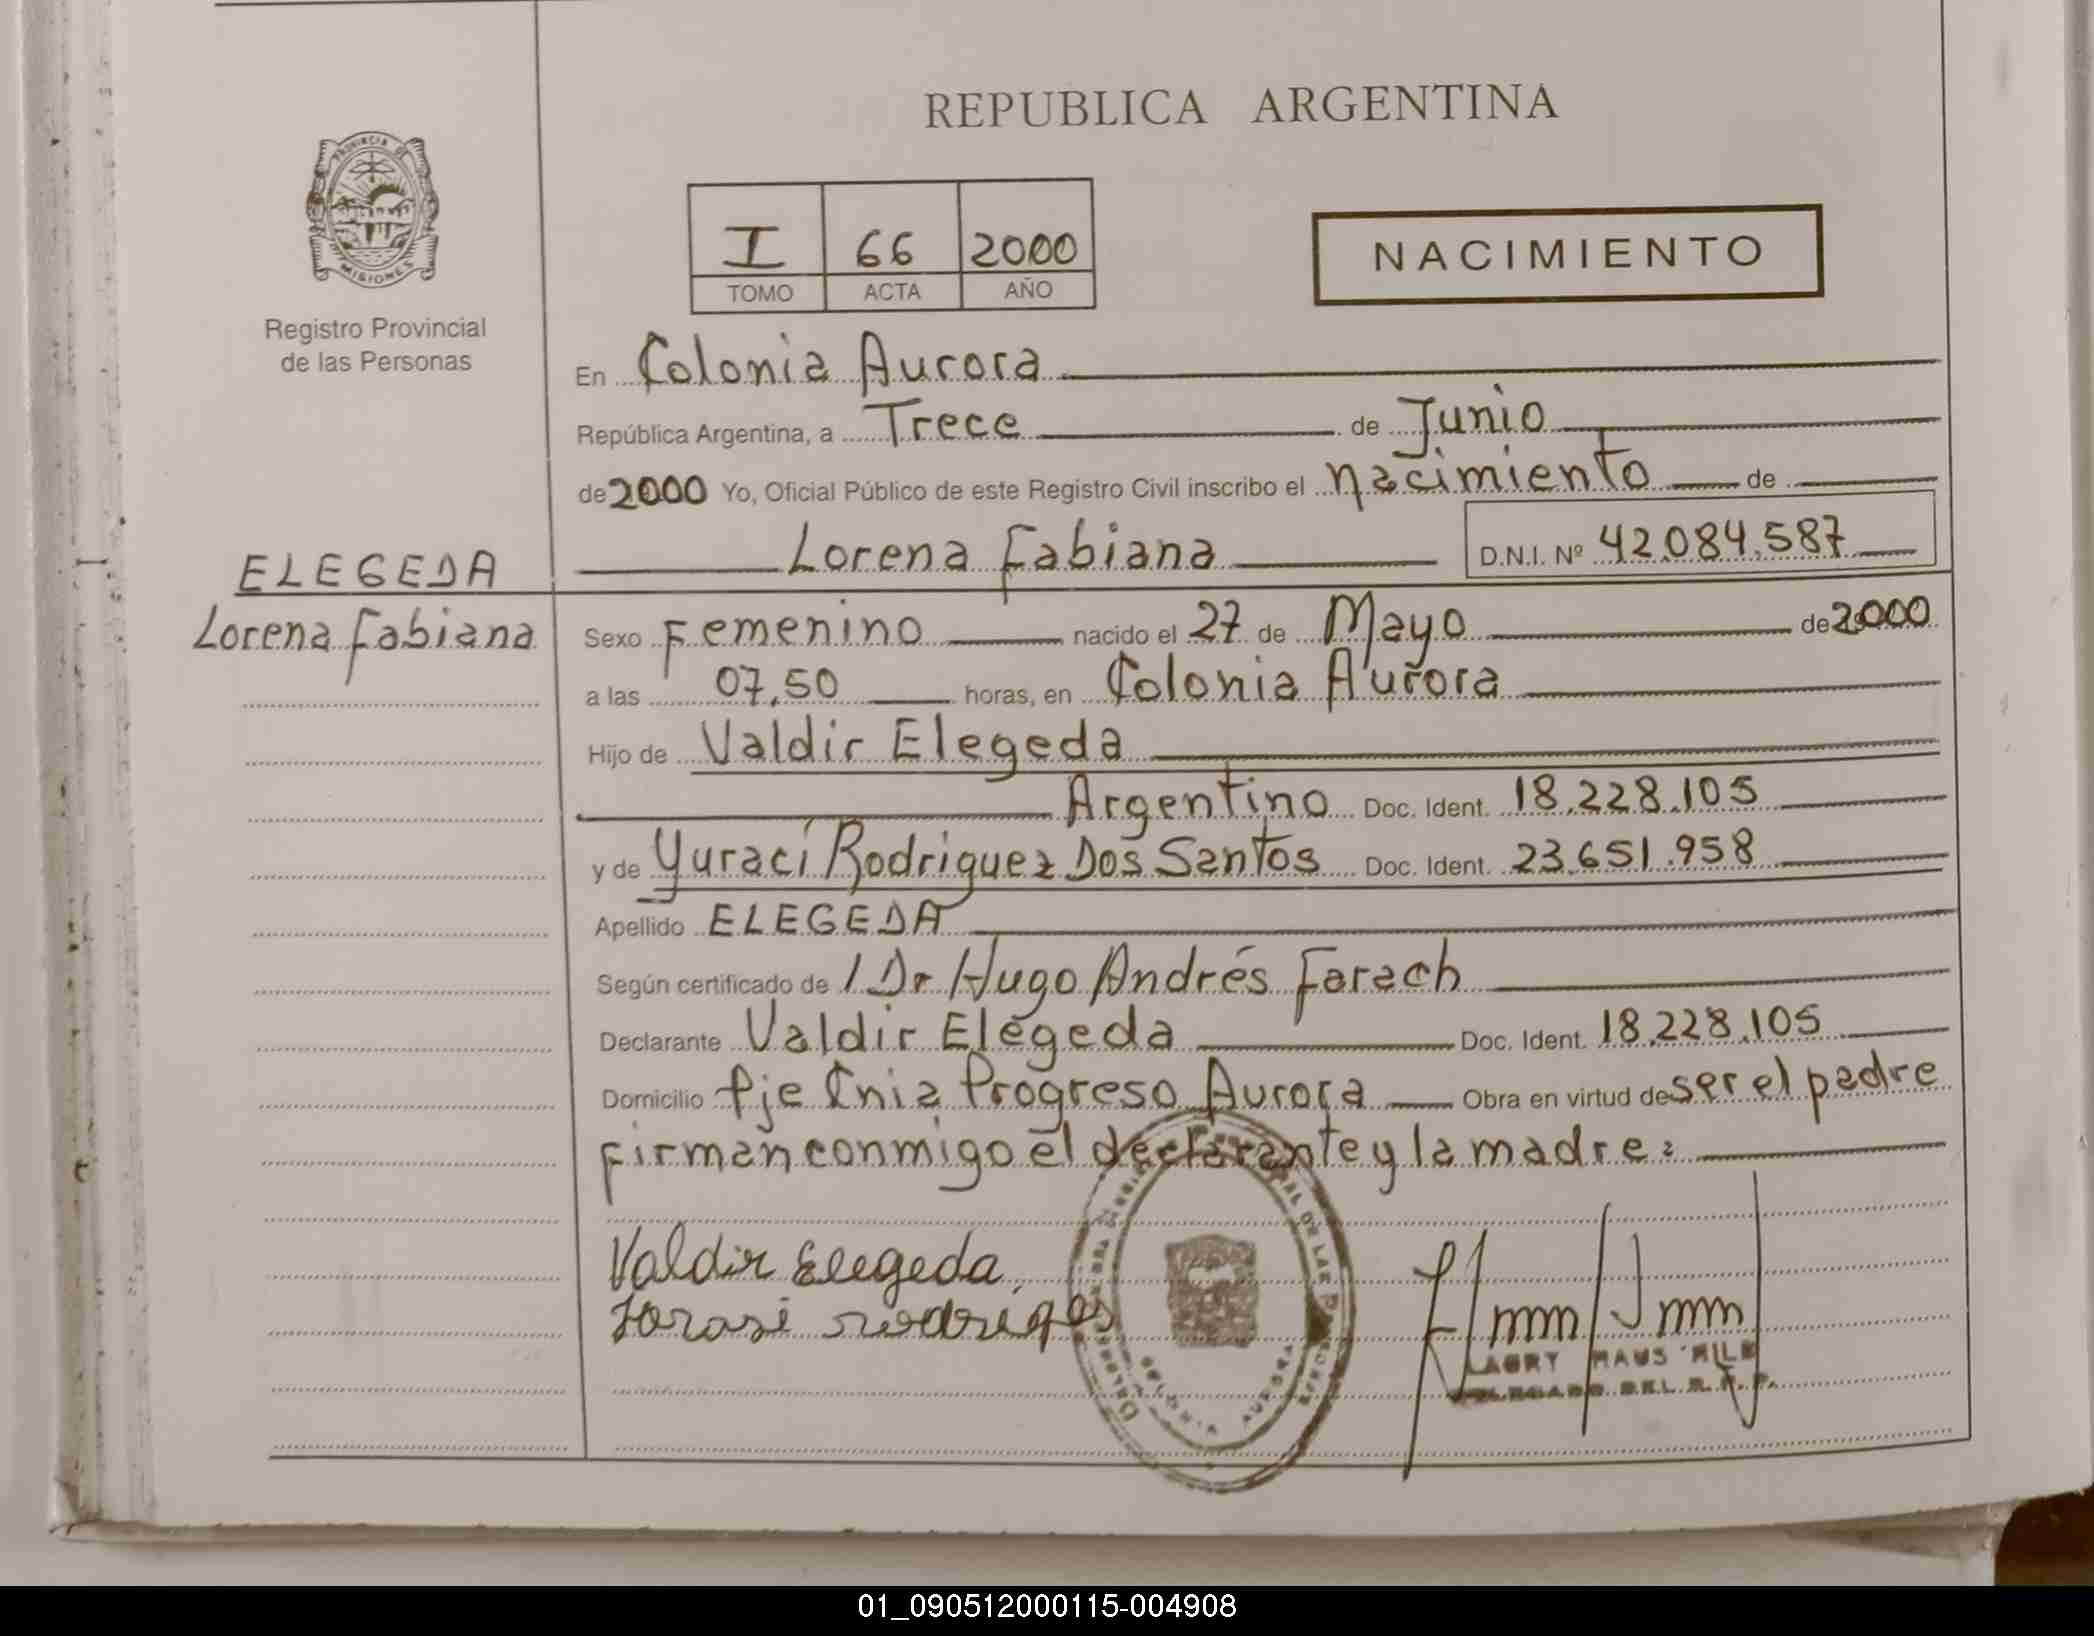 REPUBLICA ARGENTINA
PROVINCIA DE
MISIONES
Registro Provincial
de las Personas
I 66 2000
TOMO ACTA AÑO
NACIMIENTO
En Colonia Aurora
República Argentina, a Trece de Junio
de 2000 Yo, Oficial Público de este Registro Civil inscribo el nacimiento de
Lorena Fabiana D.N.I. Nº 42.084.587
ELEGEDA
Lorena Fabiana
Sexo Femenino nacido el 27 de Mayo de 2000
a las 07,50 horas, en Colonia Aurora
Hijo de Valdir Elegeda
Argentino Doc. Ident. 18.228.105
y de Yuraci Rodriguez Dos Santos Doc. Ident. 23.651.958
Apellido ELEGEDA
Según certificado de / Dr Hugo Andrés Farach
Declarante Valdir Elegeda Doc. Ident. 18.228.105
Domicilio Pje Cnia Progreso Aurora Obra en virtud de ser el padre
firman conmigo el declarante y la madre:
Valdir Elegeda
rodrigos
COLONIA AURORA
DEL R. P. P.
01_090512000115-004908